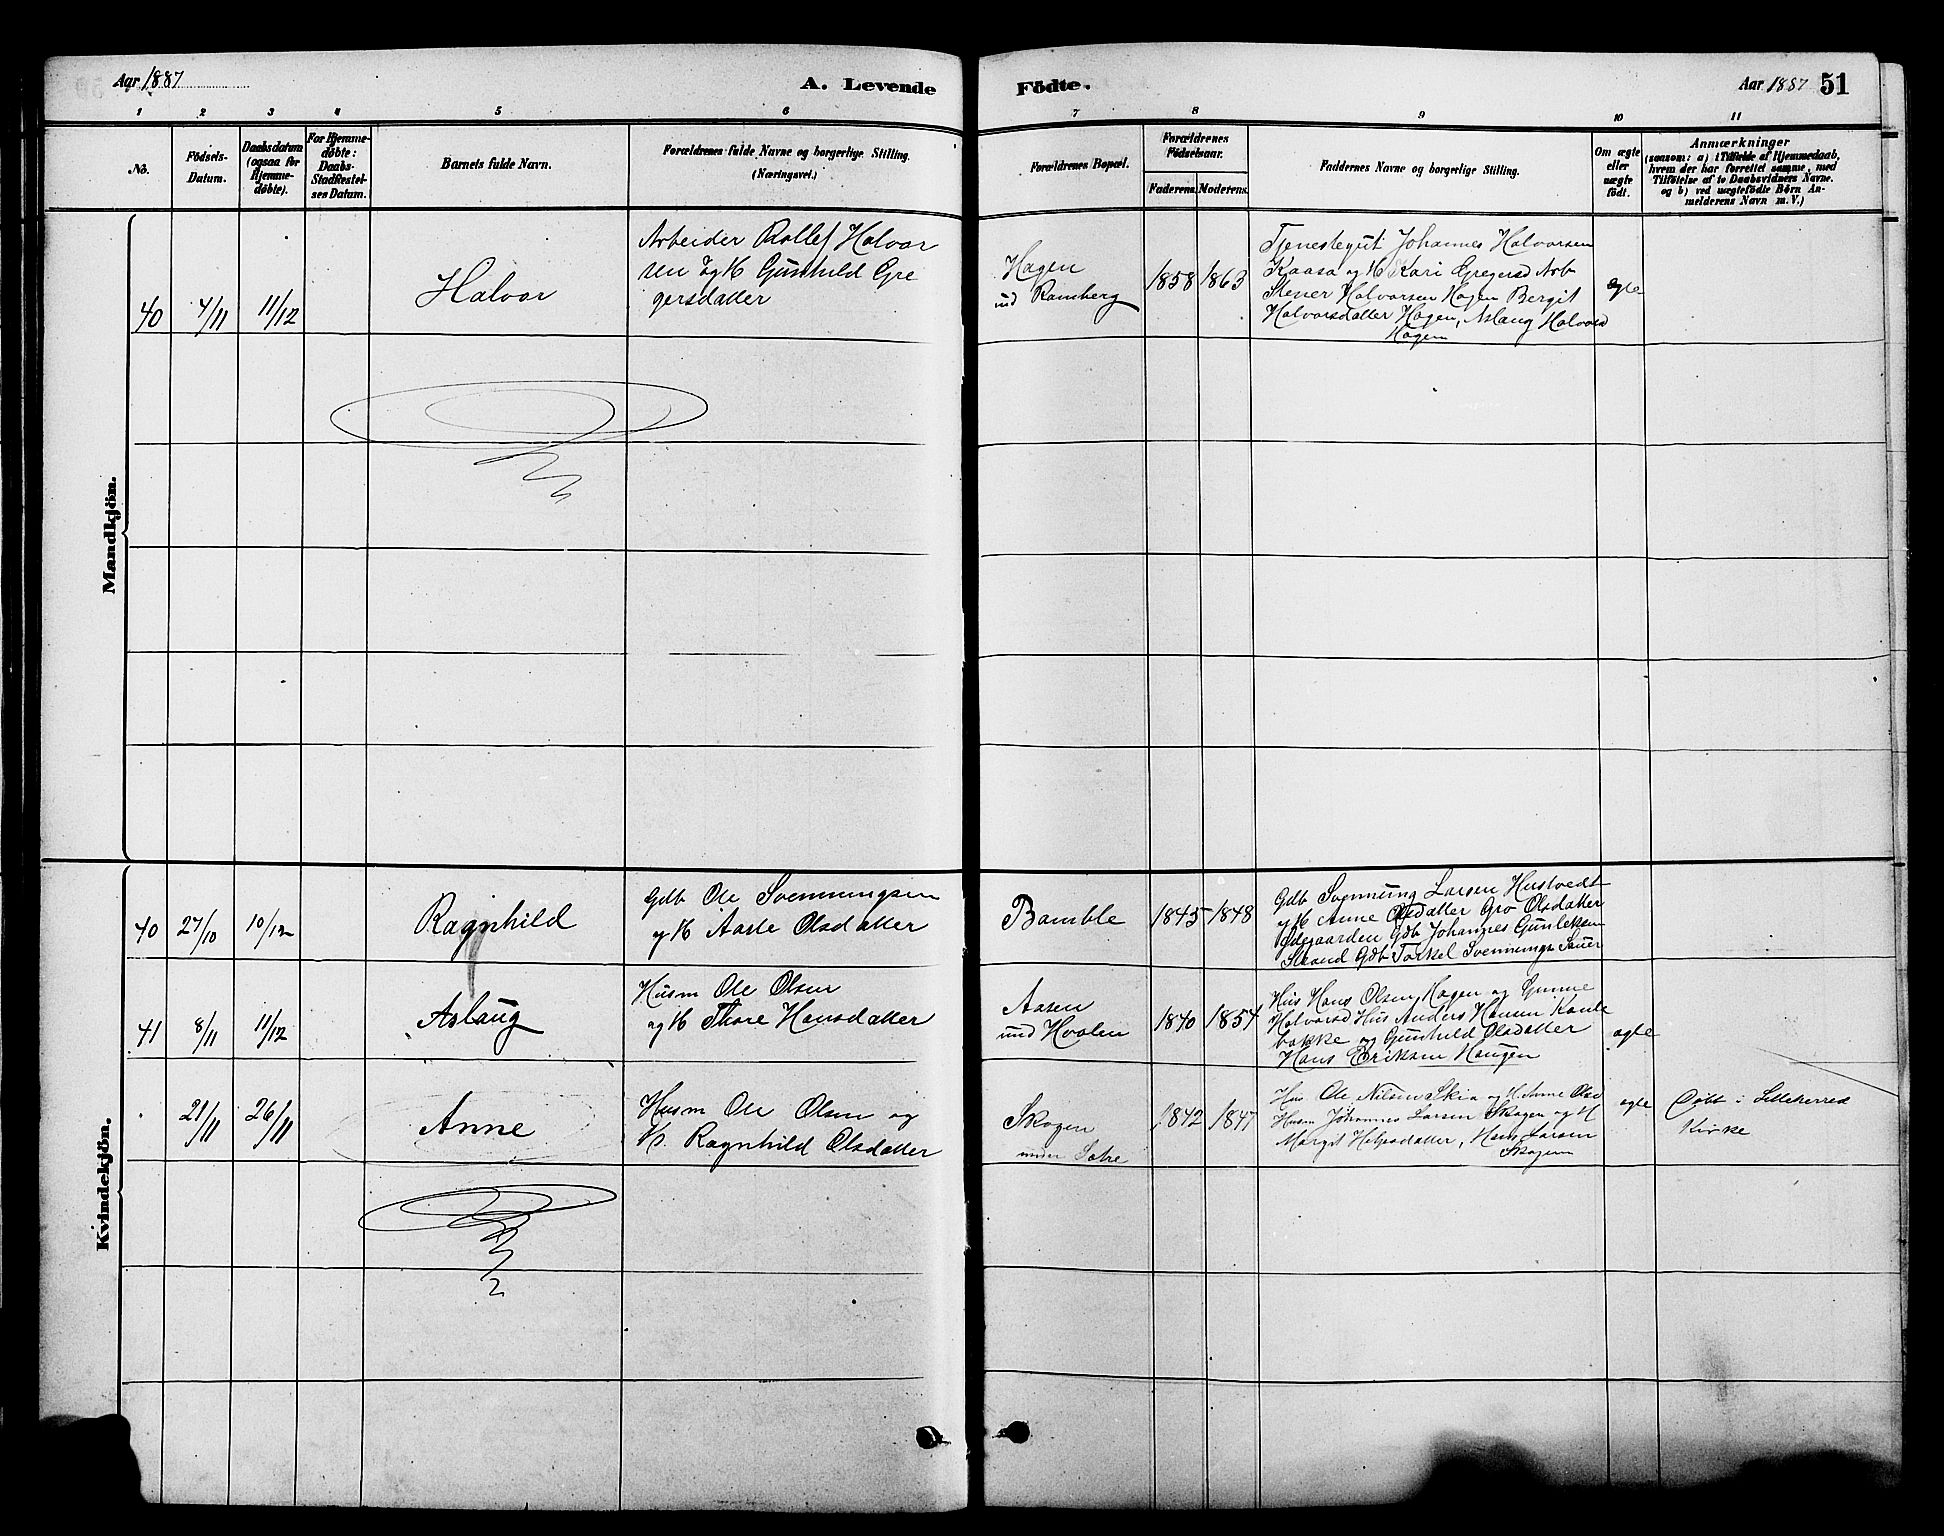 Aar 1887
A. Levende
Födte.
Aar 1887
51
1 2 3 4 5 6 7 8 9 10 11
No.
Födsels-
Datum.
Daabsdatum
(ogsaa for
Hjemme-
döbte).
For Hjemme-
döbte:
Daabs-
Stadfæstel-
ses Datum.
Barnets fulde Navn.
Forældrenes fulde Navne og borgerlige Stilling.
(Næringsvei.)
Forældrenes Bopæl.
Forældrenes
Födselsaar.
Faderens. Moderens.
Faddernes Navne og borgerlige Stilling.
Om ægte
eller
uægte
födt.
Anmærkninger
(saasom: a) i Tilfælde af Hjemmedaab,
hvem der har forrettet samme, med
Tilföielse af to Daabsvidners Navne.
og b) ved uægtefödte Börn An-
melderens Navn m. V.)
Mandkjön.
40
4/11
11/12
Halvor
Arbeider Rollef Halvor
sen og H Gunhild Gre
gersdatter
Hagen
und Ramberg
1858
1863
Tjenestegut Johannes Halvorsen
Kaasa og H Kari Gregersd Arb
Stener Halvorsen Hagen Bergit
Halvorsdatter Hagen, Aslaug Halvorsd
Hagen
ægte
Kvindekjön.
40
27/10
10/12
Ragnhild
Gdb Ole Svenningsen
og H Aaste Olsdatter
Bamble
1845
1848
Gdb Svennung Larsen Hustvedt
og H Anne Olsdatter Gro Olsdatter
Gdb Johannes Gunleksen
Strand Gdb Torkel Svennungs Sauer
41
8/11
11/12
Aslaug
Husm Ole Olsen
og H Thore Hansdatter
Aasen
und Hvalen
1840
1854
Hus Hans Olsen, Hagen og Gunne
Halvorsd Hus Anders Hansen
bakke og Gunhild Olsdatter
Hans Eriksen Haugen
ægte
21/11
26/11
Anne
Husm Ole Olsen og
K. Ragnhild Olsdatter
Skogen
under Satre
1842
1847
Hus Ole Nilsen Skia og H. Anne Olsd
Husm Johannes Larsen Skogen og H
Margit Helgesdatter, Hans Larsen
Skogen
ægte
Døbt i Lilleherred
Kirke